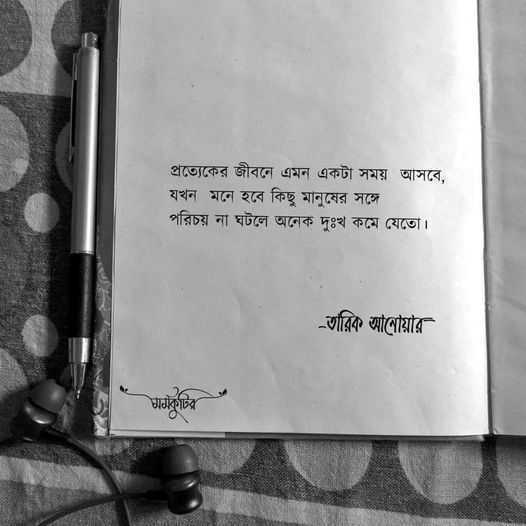 প্রত্যেকের জীবনে এমন একটা সময় আসবে,
যখন মনে হবে কিছু মানুষের সঙ্গে
পরিচয় না ঘটলে অনেক দুঃখ কমে যেতো।
-তারিক আনোয়ার
মর্মকুটির